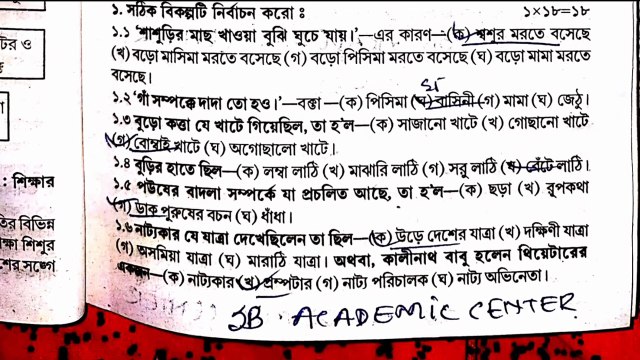 ১. সঠিক বিকল্পটি নির্বাচন করো : ১×১৮=১৮
১.১ ‘শাশুড়ির মাছ খাওয়া বুঝি ঘুচে যায়।’—এর কারণ—(ক) শ্বশুর মরতে বসেছে
(খ) বড়ো মাসিমা মরতে বসেছে (গ) বড়ো পিসিমা মরতে বসেছে (ঘ) বড়ো মামা মরতে
বসেছে।
১.২ ‘গাঁ সম্পর্কে দাদা তো হও।’—বক্তা—(ক) পিসিমা (খ) বাসিনী (গ) মামা (ঘ) জেঠু।
১.৩ বুড়ো কত্তা যে খাটে গিয়েছিল, তা হ'ল—(ক) সাজানো খাটে (খ) গোছানো খাটে
(গ) বোম্বাই খাটে (ঘ) অগোছালো খাটে।
১.৪ বুড়ির হাতে ছিল—(ক) লম্বা লাঠি (খ) মাঝারি লাঠি (গ) সরু লাঠি (ঘ) বেঁটে লাঠি।
: শিক্ষার
১.৫ পউষের বাদলা সম্পর্কে যা প্রচলিত আছে, তা হ'ল—(ক) ছড়া (খ) রূপকথা
(গ) ডাক পুরুষের বচন (ঘ) ধাঁধা।
১.৬ নাট্যকার যে যাত্রা দেখেছিলেন তা ছিল—(ক) উড়ে দেশের যাত্রা (খ) দক্ষিণী যাত্রা
(গ) অসমিয়া যাত্রা (ঘ) মারাঠি যাত্রা। অথবা, কালীনাথ বাবু হলেন থিয়েটারের
একজন—(ক) নাট্যকার (খ) প্রম্পটার (গ) নাট্য পরিচালক (ঘ) নাট্য অভিনেতা।
তির বিভিন্ন
ক্ষা শিশুর
শের সঙ্গে
টির ও
SB ACADEMIC CENTER